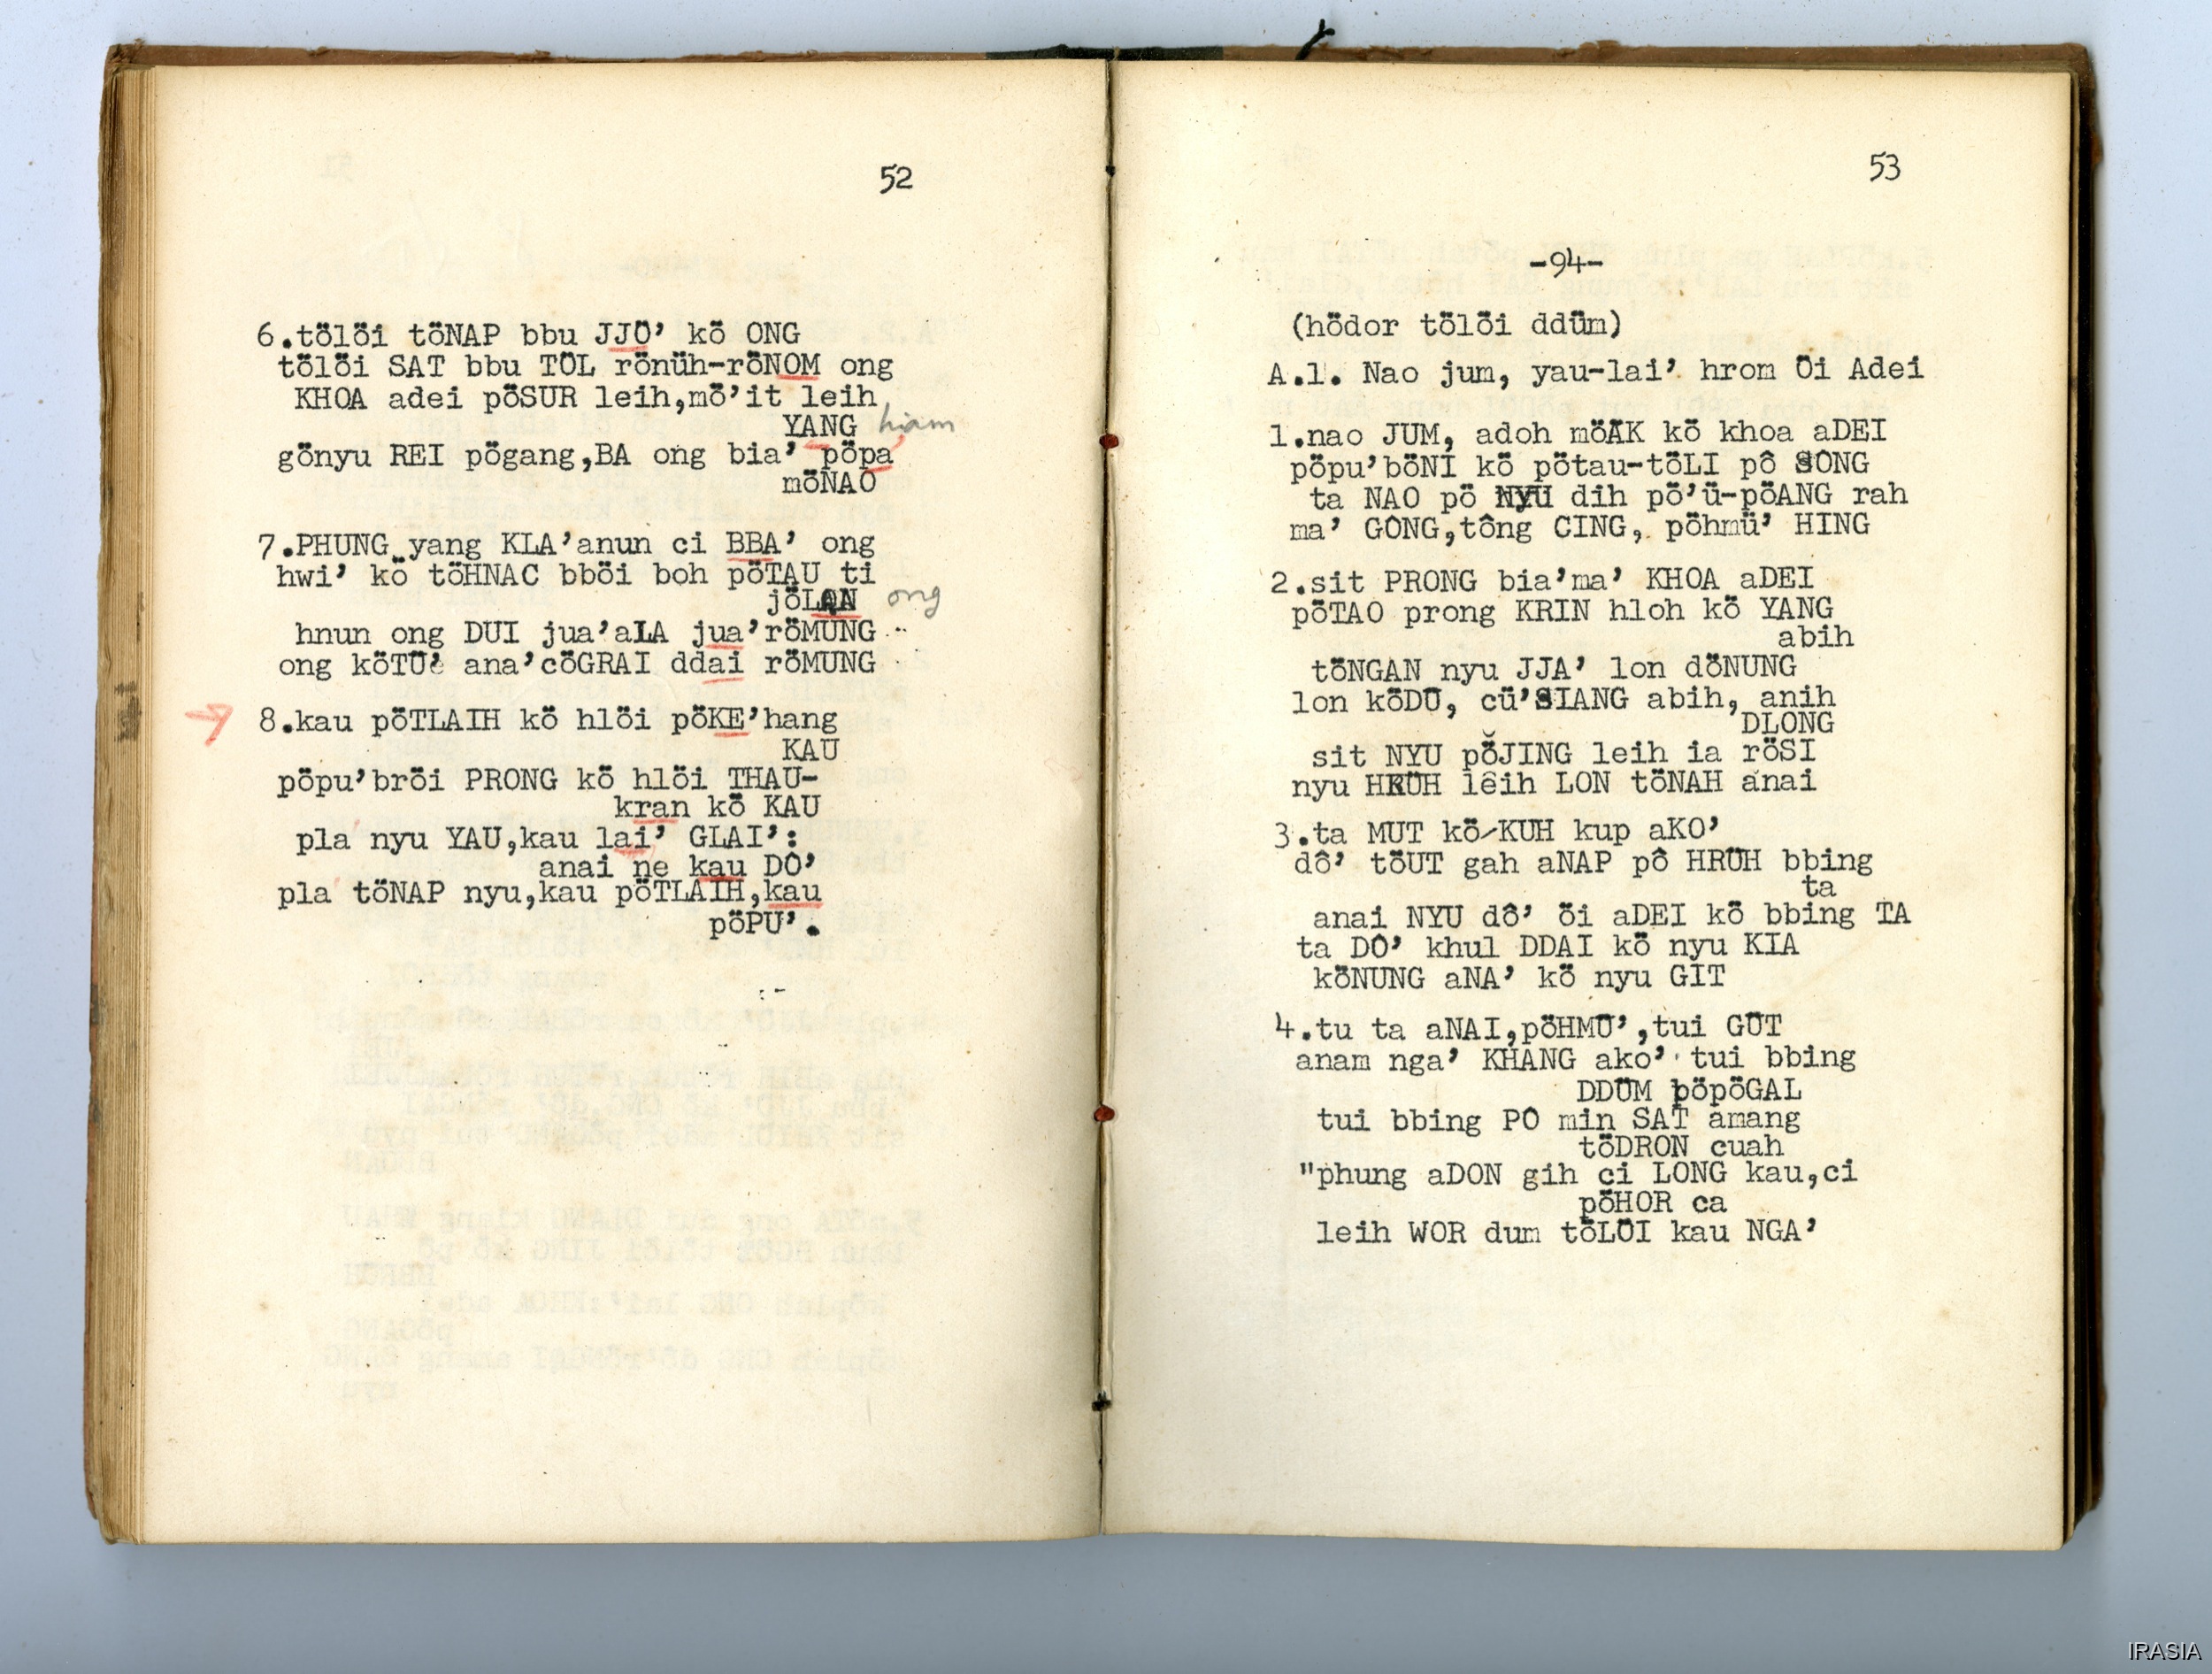 52
6.tölöi töNAP bbu JJÖ' kö ONG
tölöi SAT bbu TÖL rönüh-röNOM ong
KHOA adei pöSUR leih,mö'it leih
YANG hiam
gönyu REI pögang,BA ong bia' pöpa
möNAO
7.PHUNG yang KLA'anun ci BBA' ong
hwi' kö töHNAC bböi boh pöTAU ti
jöLAN ong
hnun ong DUI jua'aLA jua'röMÜNG
ong köTÜ' ana'cöGRAI ddai röMUNG
8.kau pöTLAIH kö hlöi pöKE'hang
KAU
pöpu'bröi PRONG kö hlöi THAU-
kran kö KAU
pla nyu YAU,kau lai' GLAI':
anai ne kau DÔ'
pla töNAP nyu,kau pöTLAIH,kau
pöPU'.
:-
53
-94-
(hödor tölöi ddüm)
A.1. Nao jum, yau-lai' hrom Öi Adei
1.nao JUM, adoh möAK kö khoa aDEI
pöpu'böNI kö pötau-töLI pô SÔNG
ta NAO pö NYU dih pö'ü-pöANG rah
ma' GÔNG,tông CING, pöhmü' HING
2.sit PRONG bia'ma' KHOA aDEI
pöTAO prong KRIN hloh kö YANG
abih
töNGAN nyu JJA' lon döNUNG
lon köDÜ, cü'SIANG abih, anih
DLONG
sit NYU pöJING leih ia röSI
nyu HRÜH leih LON töNAH anai
3.ta MUT kö KUH kup aKO'
dô' töUT gah aNAP pô HRÜH bbing
ta
anai NYU dô' öi aDEI kö bbing TA
ta DÔ' khul DDAI kö nyu KIA
köNUNG aNA' kö nyu GIT
4.tu ta aNAI,pöHMÜ',tui GÜT
anam nga' KHANG ako' tui bbing
DDÜM pöpöGAL
tui bbing PÔ min SAT amang
töDRON cuah
"phung aDON gih ci LONG kau,ci
pöHOR ca
leih WOR dum töLÖI kau NGA'
IRASIA